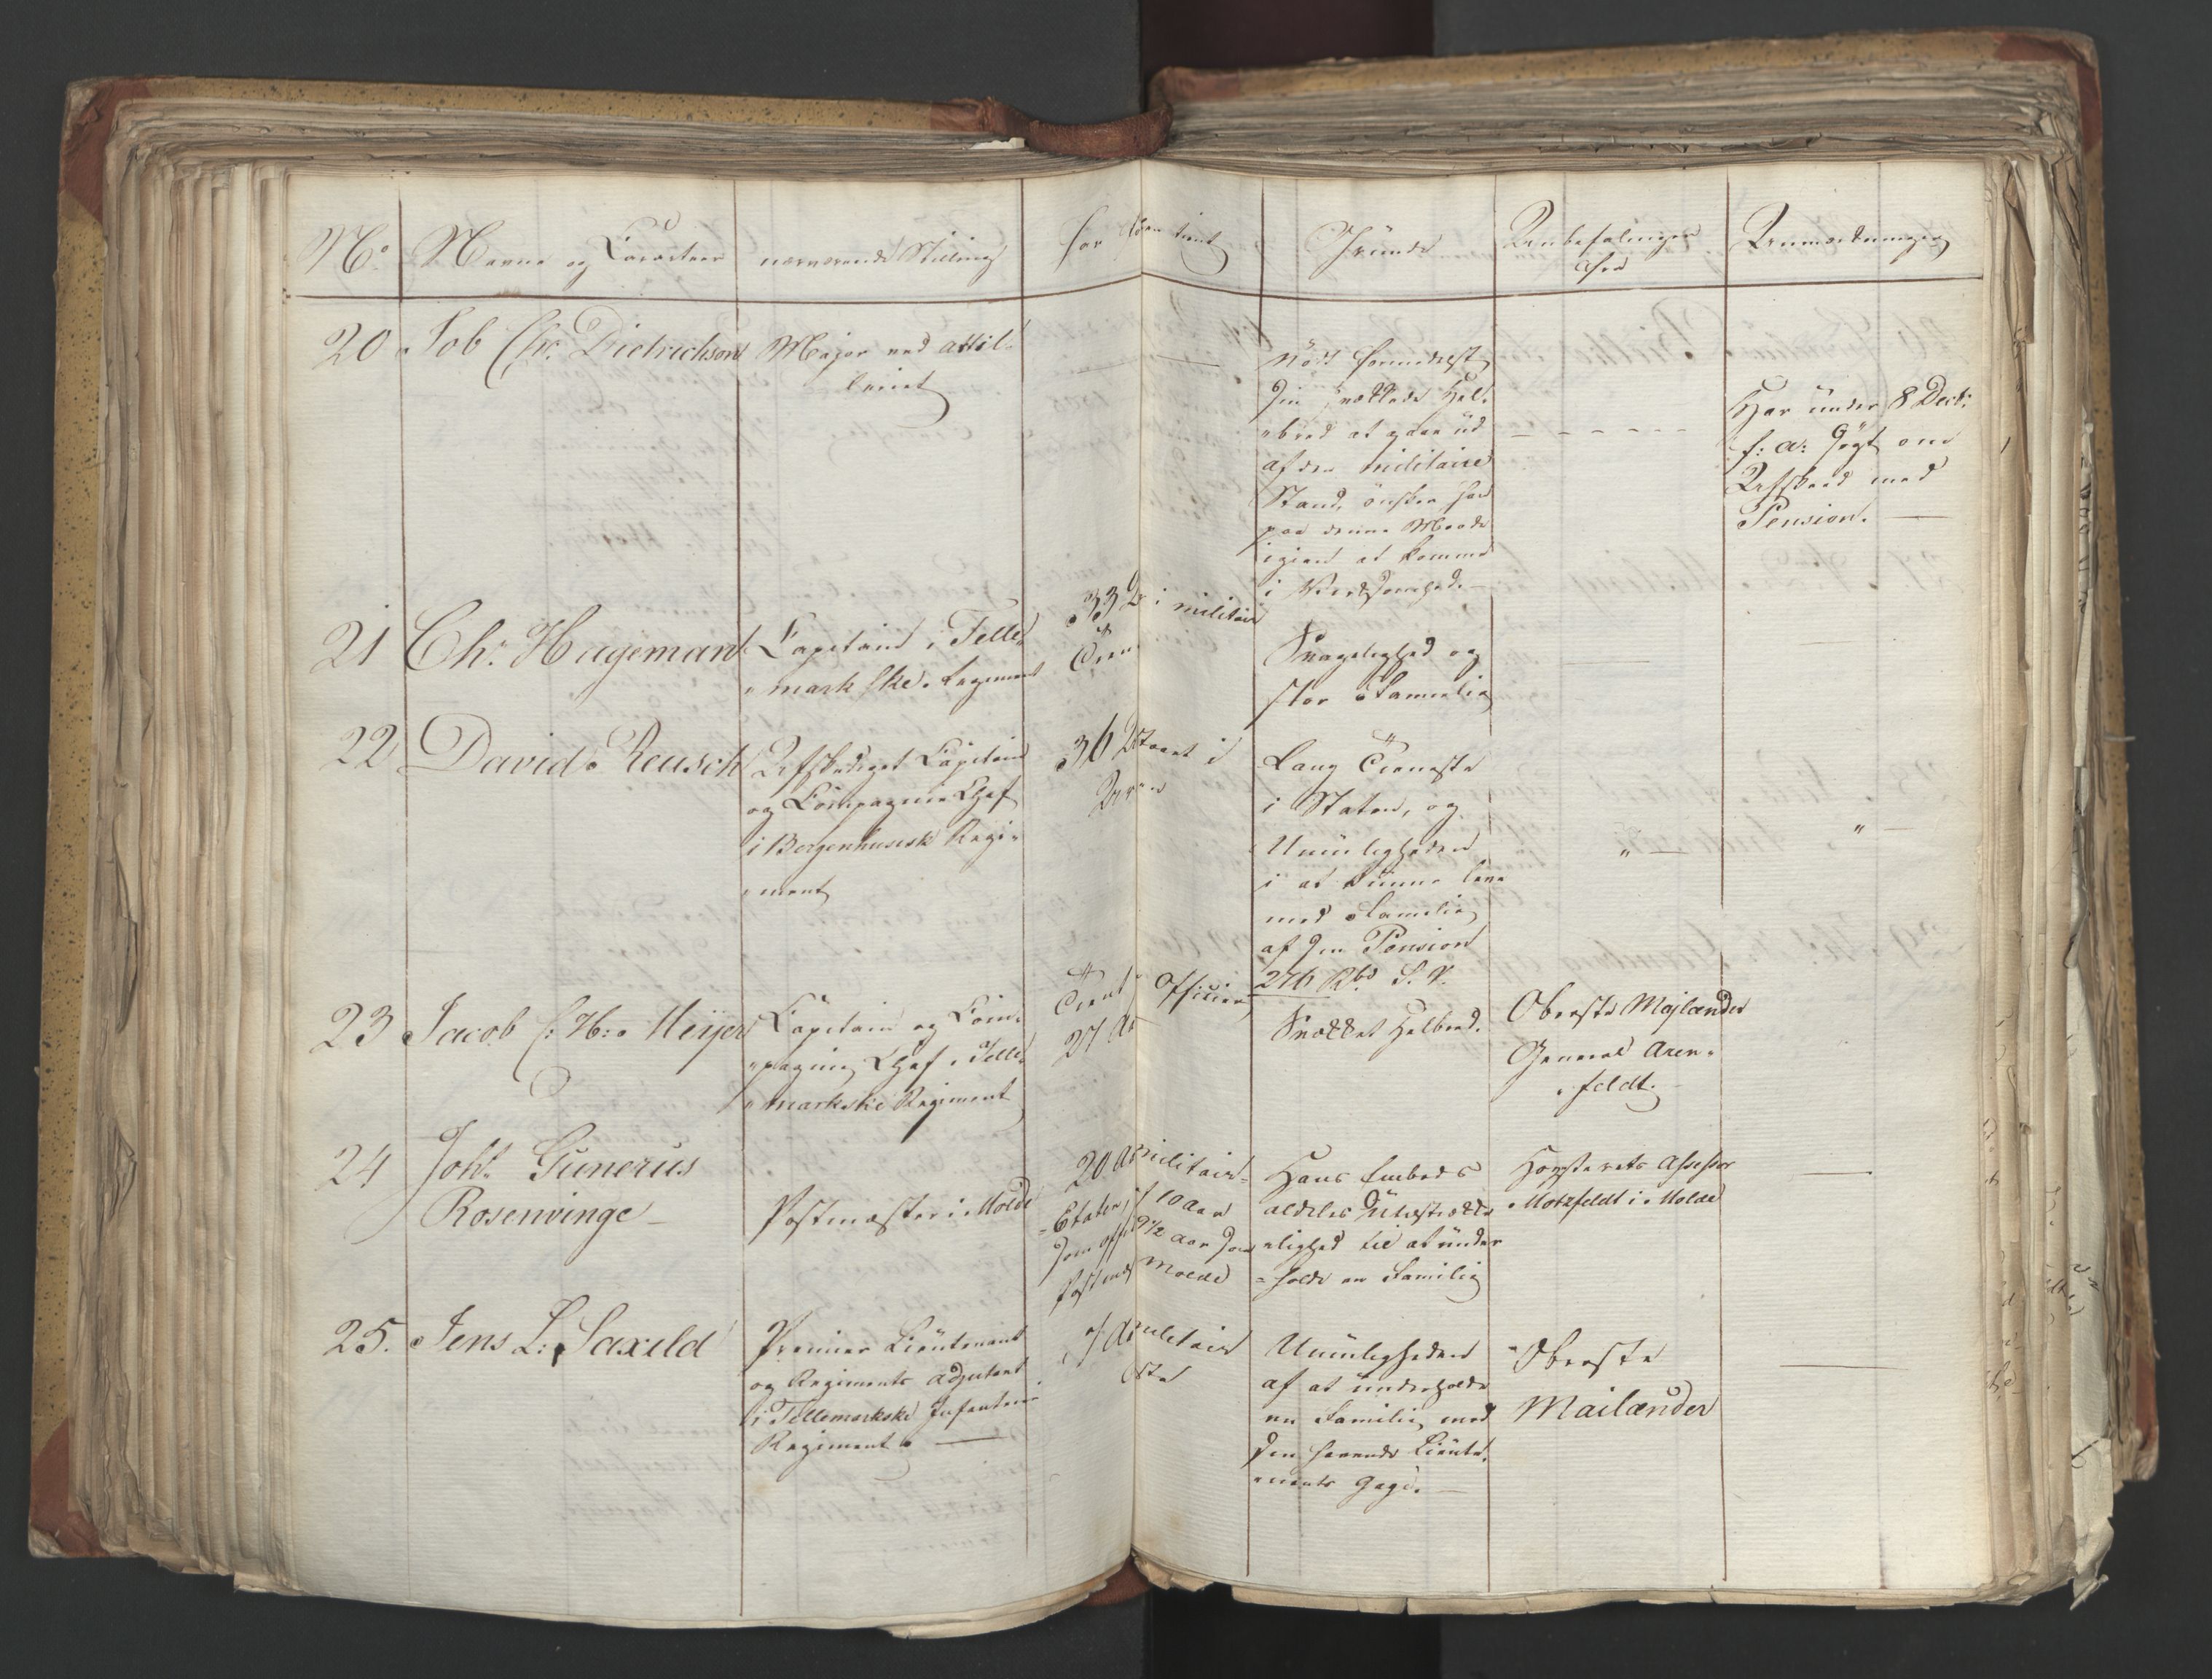 No Navne og Caracteer nærværende Stilling har tient Grunde Anbefalinger Anmærkninger
fra
20 Job Chr. Dietrichson Major ved Artil-
leriet
Nødt formedelst
sin svækkede Hel-
bred at gaae ud
af den militaire
Stand, ønsker han
paa denne Maade
igien at komme
i Virksomhed. —
Har under 8 Decbr:
f: A: søgt om
Afskeed med
Pension. —
21 Chr. Hageman Capitain i Telle-
markske Regiment
33 i militair
Tien
Svagelighed og
stor Familie
22 David Reusch Afskediget Capitain
og Compagnie Chef
i Bergenhusisk Regi-
ment
36 i
Lang Tieneste
i Staten, og
Umuligheden
i at kunne leve
med Familie
af sin Pension
276 Rbd S. V.
23 Jacob C: H: Meyer Capitain og Com-
pagnie Chef i Telle-
markske Regiment
Tient Officier
27 Aar
Svækket Helbred.
Oberste Majlænder
General Aren-
feldt.
24 Joh. Gunerus
Rosenvinge —
Postmæster i Molde
20 Aar militair
Etaten, 10 Aar
som 9 1/2 Aar som
Postmæs Molde
Hans Embeds
aldeles Utilstrække-
lighed til at under-
holde en Familie
Høyesterets Assessor
Motzfeldt i Molde
25. Jens L: Saxild Premier Lieutenant
og Regiments Adjutant
i Tellemarkske Infanterie
Regiment —
7 Aar militair
Umuligheden
af at underholde
en Familie med
sin havende Lieute-
nants Gage. —
Oberste
Mailænder